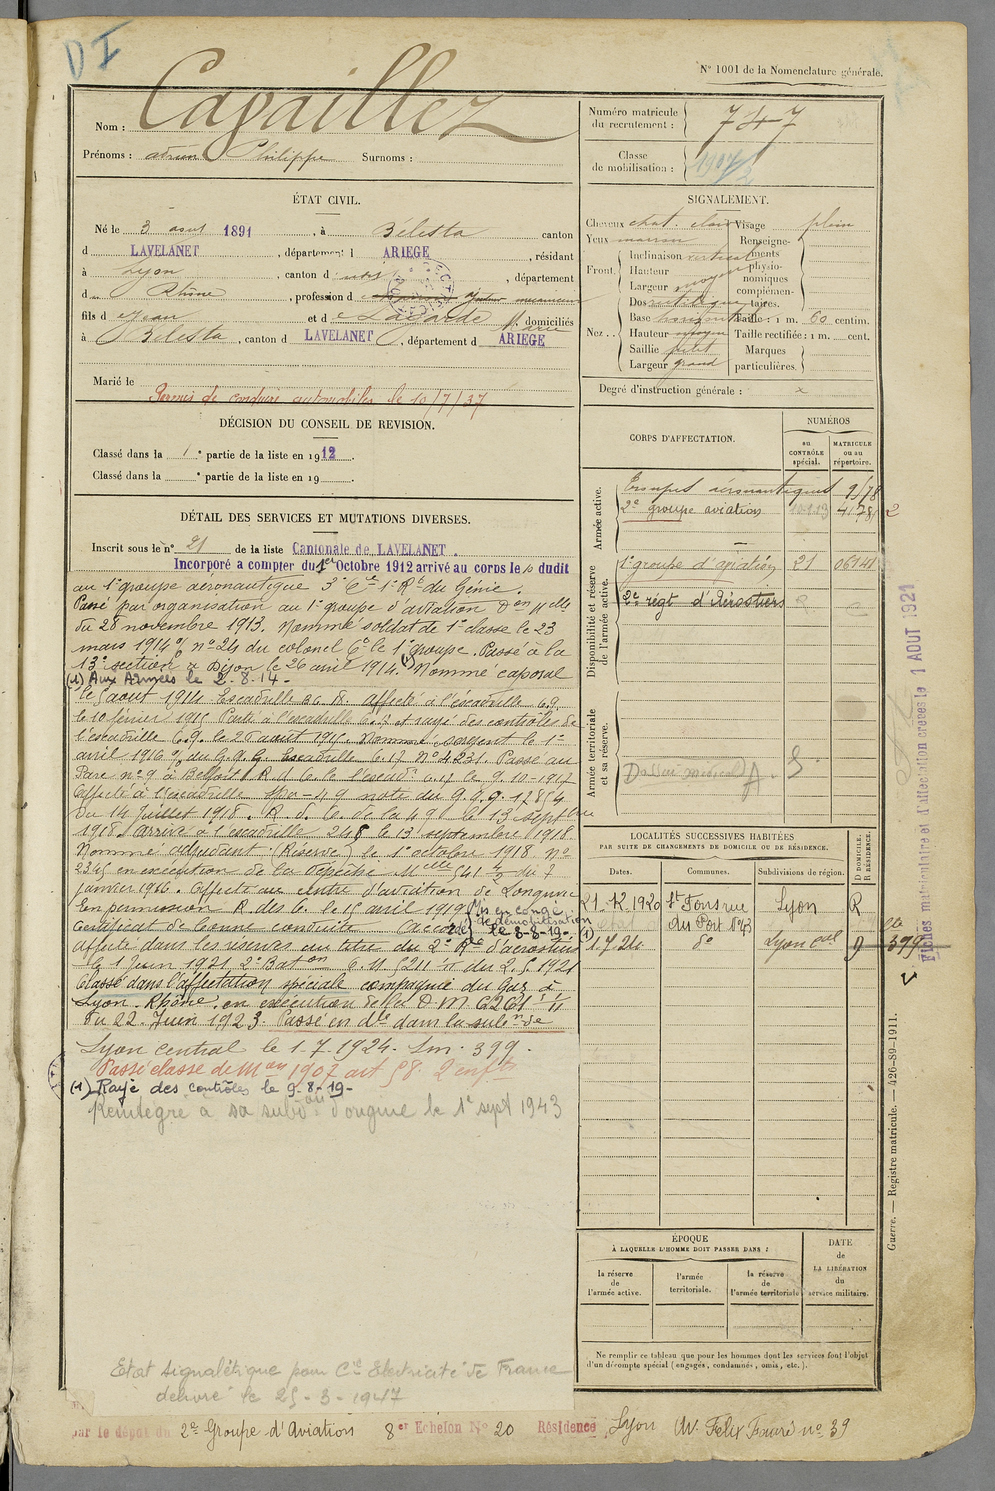 D I
N° 1001 de la Nomenclature générale.
Nom : Cagaillez
Prénoms : Adrien Philippe Surnoms :
Numéro matricule du recrutement : 747
Classe de mobilisation : 1907
ÉTAT CIVIL.
Né le 3 aout 1891, à Bélesta canton
d LAVELANET, département d ARIEGE, résidant
à Lyon, canton d, département
d u Rhône, profession d ajusteur mécanicien
fils d e Jean et d e Lagarde Marie domiciliés
à Bélesta, canton d LAVELANET, département d ARIEGE
Marié le
Permis de conduire automobiles le 10/7/37
DÉCISION DU CONSEIL DE REVISION.
Classé dans la 1e partie de la liste en 1912.
Classé dans la e partie de la liste en 19 .
DÉTAIL DES SERVICES ET MUTATIONS DIVERSES.
Inscrit sous le n° 21 de la liste Cantonale de LAVELANET.
Incorporé a compter du 1er Octobre 1912 arrivé au corps le 10 dudit
au 1e groupe aéronautique 3e Cie 1e Rt du Génie.
Passé par organisation au 1e groupe d'aviation Don Mlle
du 28 novembre 1913. Nommé soldat de 1e classe le 23
mars 1914 n° 24 du colonel Ct le 1e groupe. Passé à la
13e section à Dijon le 26 avril 1914. (1) Nommé caporal
(1) Aux Armées le 2-8-14-
le 5 aout 1914. Escadrille BG R. affecté à l'escadrille C.9.
le 10 février 1915 Passé à l'escadrille C.17 et rayé des contrôles de
l'escadrille C.9. le 25 aout 1915. Nommé sergent le 1e
avril 1916 du G.Q.G Escadrille C.17 N° 4231. Passé au
Parc n° 9 à Belfort. R d C. le l'escad. C.17 le 9.10-1917
Affecté à l'escadrille Spa-49 note du G.Q.G. 17854
du 14 Juillet 1918. R. d. C. de la 49 le 13 septbre
1918. Arrivé à l'escadrille 248 le 13 septembre 1918.
Nommé adjudant (Réserve) le 1e octobre 1918 N°
2345 en exécution de la dépêche Mlle 541 du 7
janvier 1916. Affecté au centre d'aviation de Longvic
En permission R. des C. le 15 avril 1919 Mis en congé
de démobilisation
Certificat de bonne conduite Accordé le 8-8-19-
affecté dans les réserves au titre du 2e Rt d'aérostiers
le 1 Juin 1921 2e Baton C.M. 5211 du 2.5.1921
Classé dans l'affectation spéciale compagnie du Gaz à
Lyon. Rhône en exécution de la D. M. 6261
du 22 Juin 1923. Passé en dle dans la subn de
Lyon central le 1.7.1924. Lm. 399.
Passé classe de Mon 1907 art 58. 2 enfts
(1) Rayé des contrôles le 9-8-19-
Réintégré à sa subon d'origine le 1e sept 1943
Etat signalétique pour Cie Electricité de France
délivré le 25-3-1947
par le dépôt du 2e Groupe d'Aviation 8er Echelon N° 20 Résidence Lyon Av. Felix Faure n° 39
SIGNALEMENT.
Cheveux chat. clair Visage plein
Yeux marron Renseignements physionomiques complémentaires.
Front. Inclinaison vertical
Hauteur
Largeur moy
Nez.. Dos rectiligne
Base horizontal Taille : 1 m. 60 centim.
Hauteur moyen Taille rectifiée : 1 m. cent.
Saillie petit Marques
Largeur grand particulières.
Degré d'instruction générale : x
CORPS D'AFFECTATION.
NUMÉROS
au CONTRÔLE spécial.
MATRICULE ou au répertoire.
Armée active.
Troupes aéronautiques 9178
2e groupe aviation 10-1.13
Disponibilité et réserve de l'armée active.
1e groupe d'aviation 21 06141
2e régt d'Aérostiers
Armée territoriale et sa réserve.
Dossier médical A. S.
LOCALITÉS SUCCESSIVES HABITÉES
PAR SUITE DE CHANGEMENTS DE DOMICILE OU DE RÉSIDENCE.
Dates. Communes. Subdivisions de région. D DOMICILE. R RÉSIDENCE.
21.12.1920 St Fons rue Lyon R
du Port n° 43
1.7.24 do Lyon cal D 399
Fiches matriculaire et d'affectation créées le 1 AOUT 1921
Guerre. — Registre matricule. — 426-89-1911.
ÉPOQUE
À LAQUELLE L'HOMME DOIT PASSER DANS :
la réserve de l'armée active.
l'armée territoriale.
la réserve de l'armée territoriale
DATE de LA LIBÉRATION du service militaire.
Ne remplir ce tableau que pour les hommes dont les services font l'objet
d'un décompte spécial (engagés, condamnés, omis, etc.).